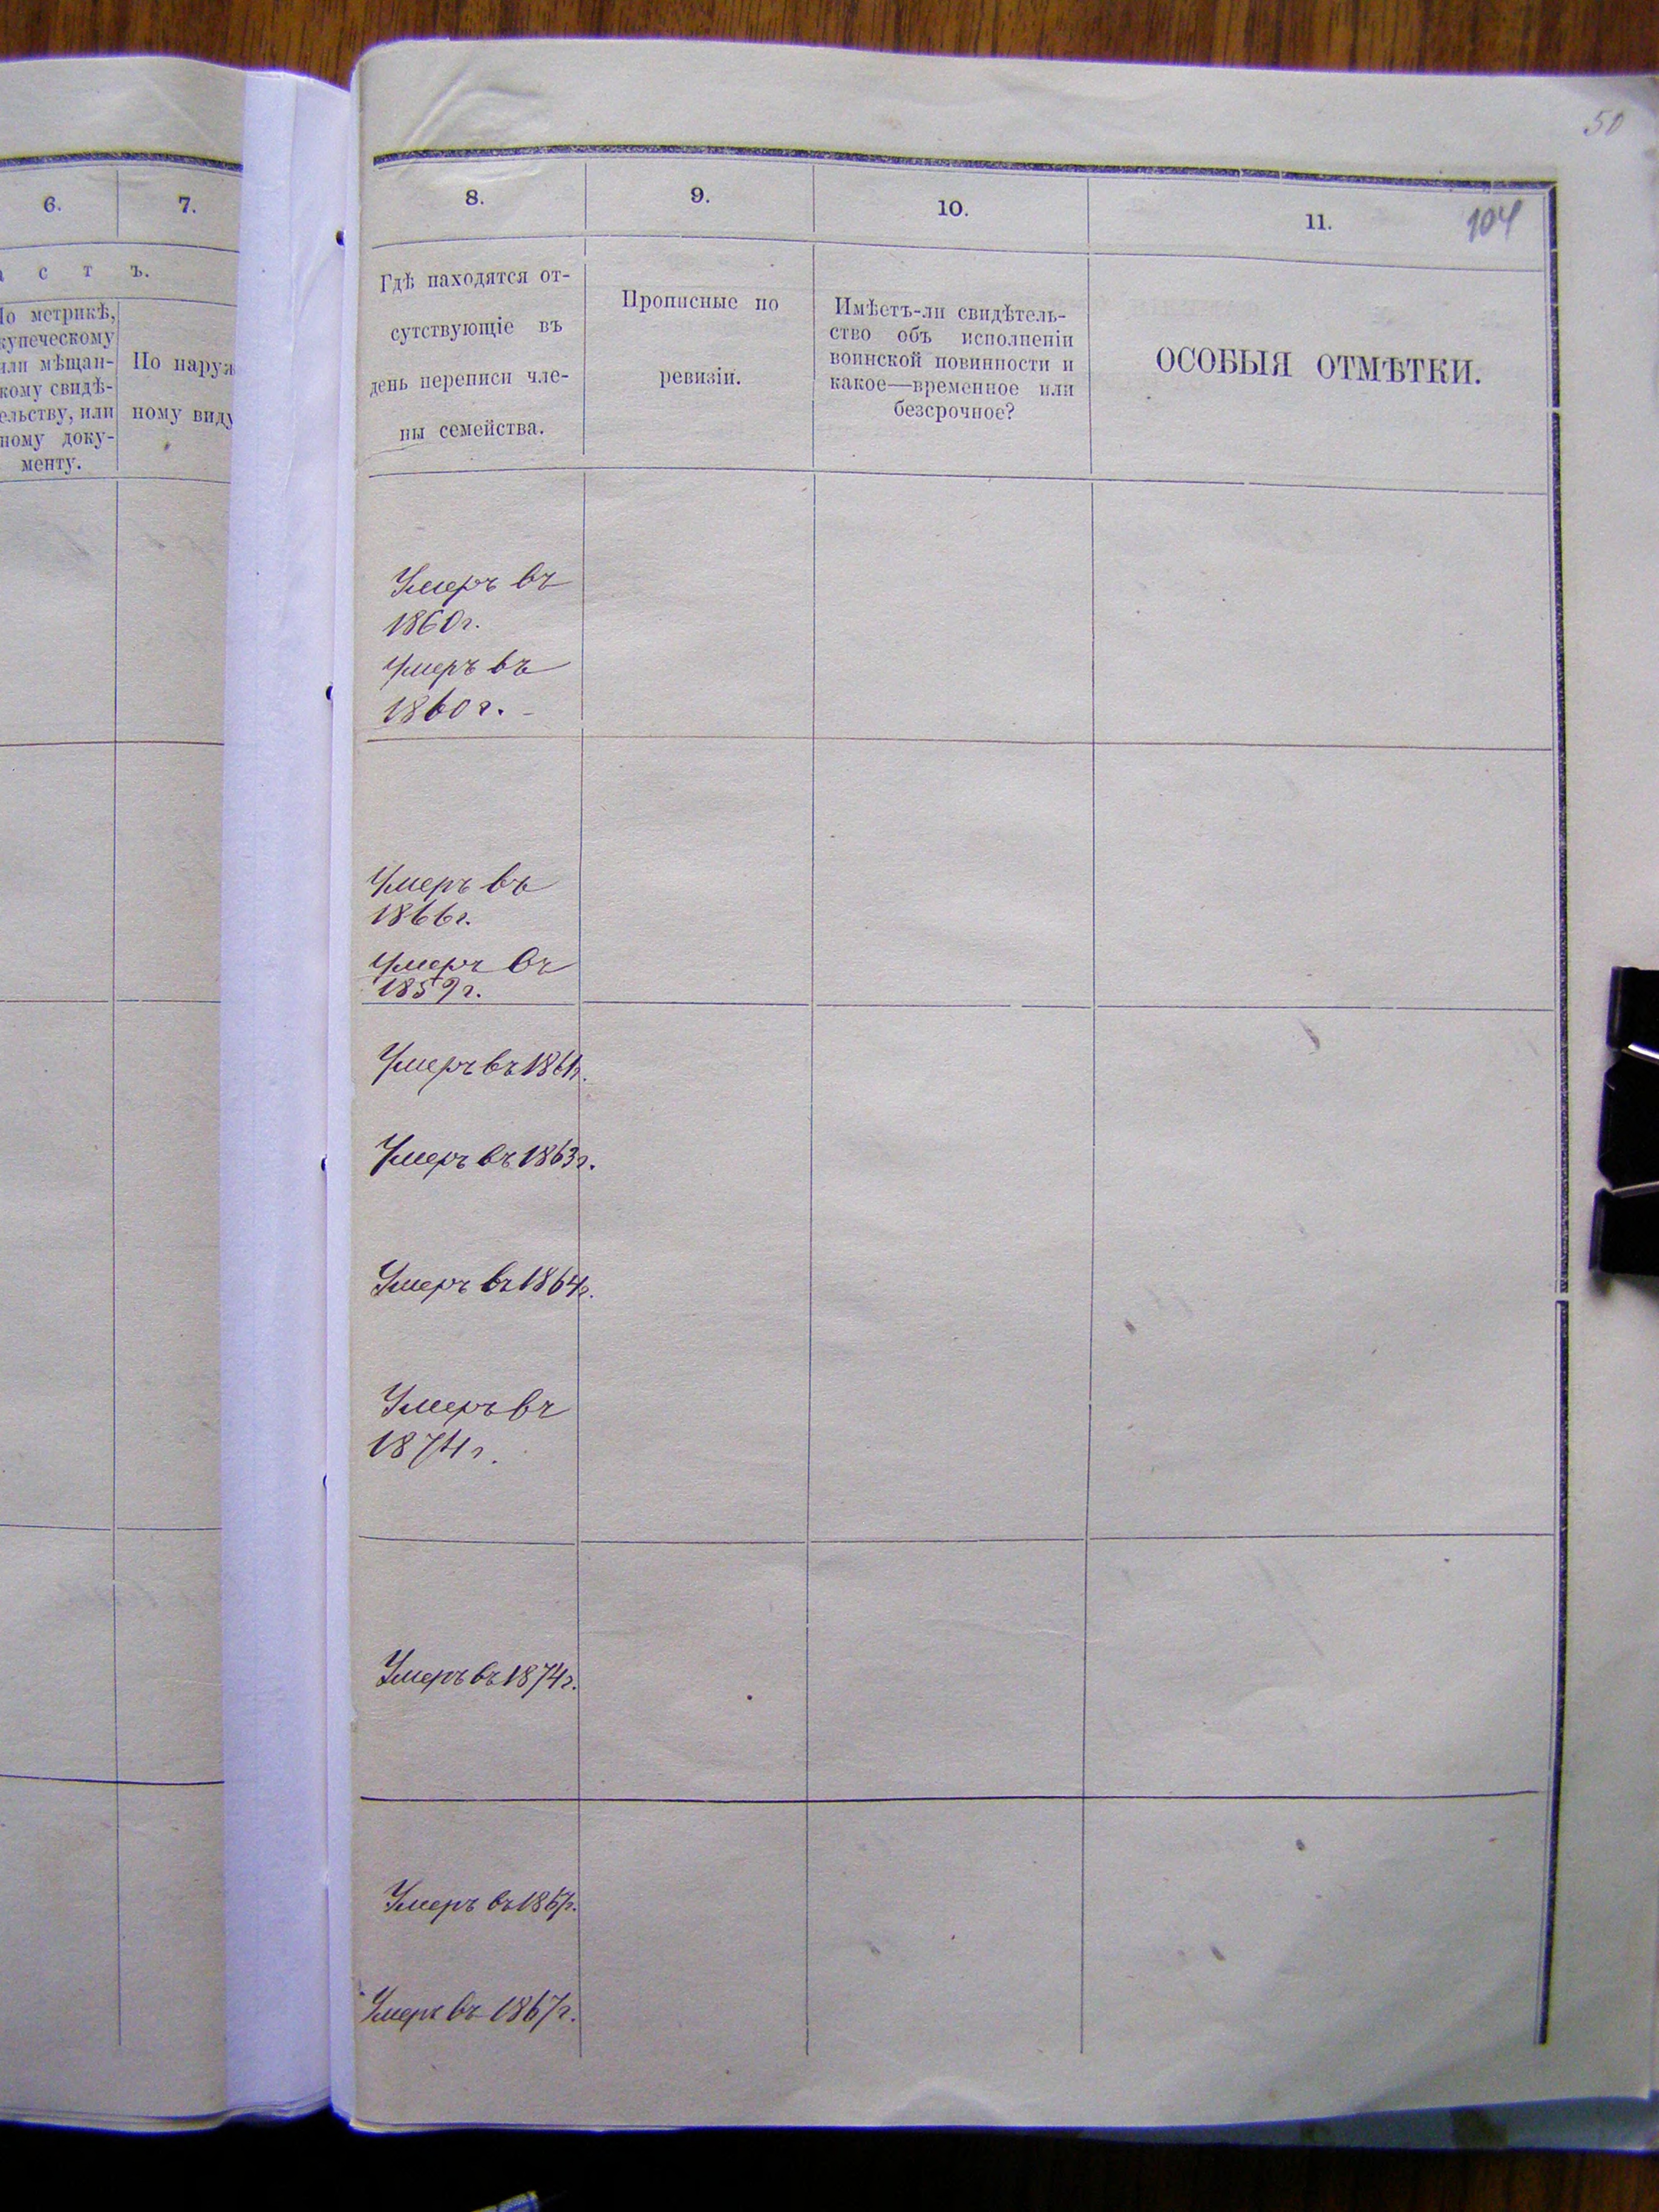 50
6.
7.
с т ъ.
По метрикѣ,
купеческому
или мѣщан-
кому свидѣ-
ельству, или
ному доку-
менту.
По наруж
ному виду
8.
9.
10.
11.
104
Гдѣ находятся от-
сутствующіе въ
день переписи чле-
ны семейства.
Прописные по
ревизіи.
Имѣетъ-ли свидѣтель-
ство объ исполненіи
воинской повинности и
какое—временное или
безсрочное?
ОСОБЫЯ ОТМѢТКИ.
Умеръ въ
1860г.
Умеръ въ
1860г.
Умеръ въ
1866г.
Умеръ въ
1859г.
Умеръ въ 1861г.
Умеръ въ 1863г.
Умеръ въ 1864г.
Умеръ въ
1874г.
Умеръ въ 1874г.
Умеръ въ 1867г.
Умеръ въ 1867г.